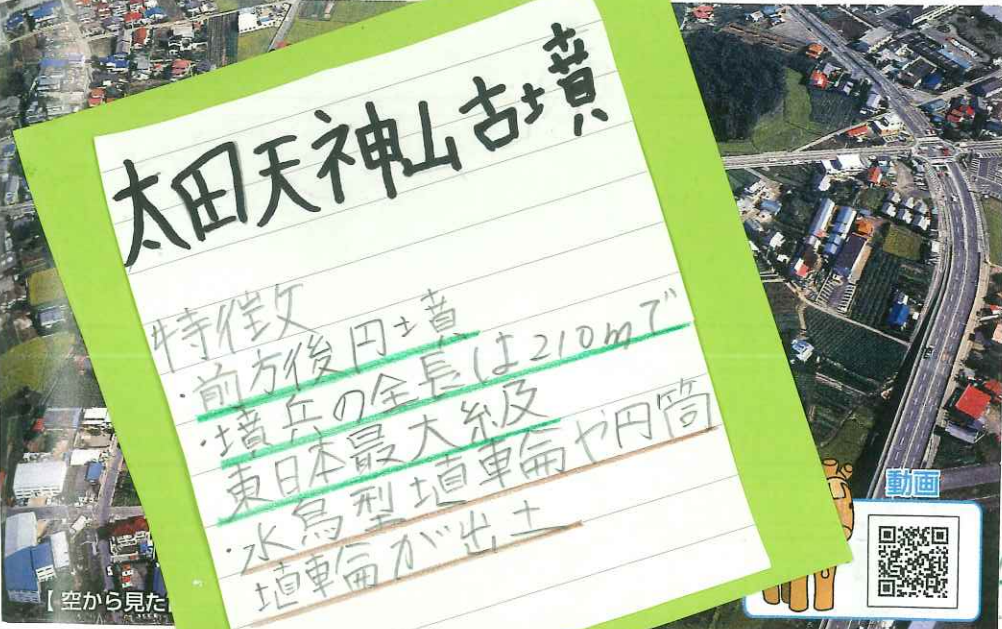 太田天神山古墳
特徴
・前方後円墳
・墳兵の全長は210mで
東日本最大級
・水鳥型埴輪や円筒
埴輪が出土
動画
【空から見た